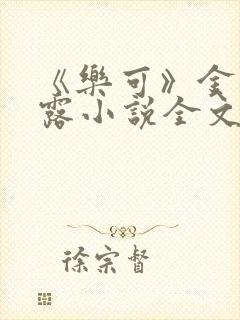 《樂可》金
露小說全文
徐宗督